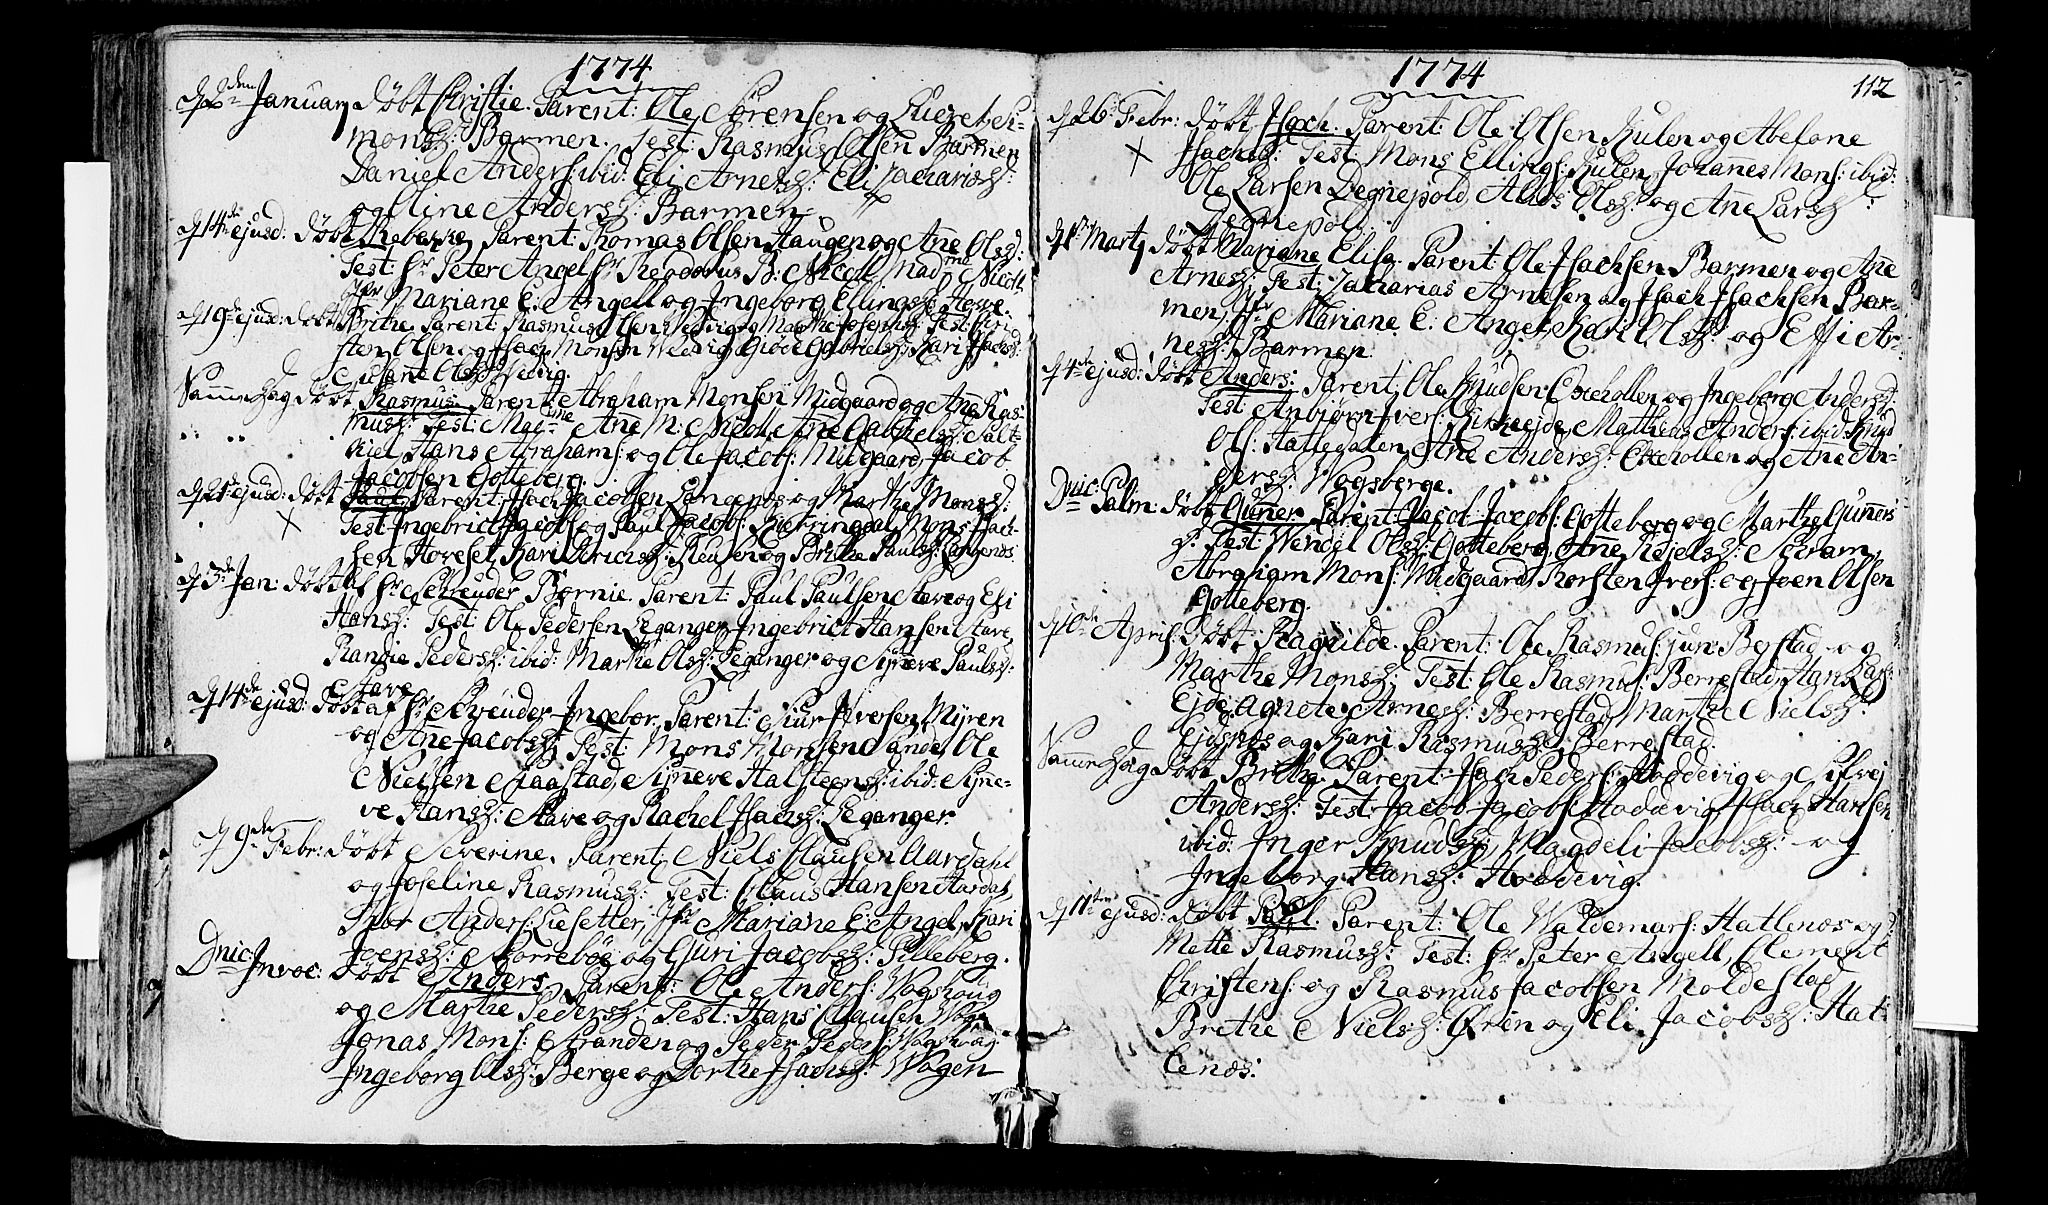 1774
d 2den January døbt Christie. Parent: Ole Sørensen og Lisebet Si-
monsd: Barmen. Test: Rasmus Olsen Barmen
Daniel Anders: ibid: Eli Arnesd: Eli Zachariæd:
og Oline Andersd: Barmen
d 14de ejusd: døbt Rebekke, Parent: Thomas Olsen Haugen og Ane Olsd:
Test: Hr Peter Angel Hr Theodorus B: Nicoll Madme Nicoll
Jfr Mariane E: Angell og Ingeborg Ellingsd: Hove.
d 19de ejusd: døbt Brithe. Parent: Rasmus Olsen Wedvig og Marthe Josephsd: Test: Chri-
sten Olsen og Isach Monsen Wedvig Giøde Gabrielsd: Kari Isachsd
Olsd: Wedvig.
Samme Dag døbt Rasmus Parent: Abraham Monsen Midgaard og Ane Ras-
musd: Test: Ane M: Nicoll, Ane Gabrielsd: Salt-
kiel, Hans Abrahams: og Ole Jacobs: Midgaard, Jacob
Jacobsen Gotteberg.
d 21de ejusd: døbt Paul Parent: Isach Jacobsen Langenæs og Marthe Monsd:
X Test: Ingebrict Jacobs: og Paul Jacobs: Kierringdal, Mons Isach-
sen Hoveset, Kari Erichsd: Refsen og Brithe Paulsd: Langenæs
d 3de Jan: døbt af Hr Schreuder Børnie. Parent: Paul Paulsen Stave og Eli
Hansd: Test: Ole Pedersen Leganger Ingebrict Hansen Stave,
Randie Pedersd: ibid: Marthe Olsd: Leganger og Syneve Paulsd:
Stave
d 14de ejusd: døbt af Hr Schreuder Ingebor, Parent: Siur Iversen Myren
og Ane Jacobsd: Test: Mons Monsen Sande, Ole
Nielsen Staastad, Synneve Halsteensd: ibid: Syne-
ve Hansd: Stave og Rachel Isachsd: Leganger
d 9de Febr: døbt Severine. Parent: Niels Clausen Aardahl
og Joseline Rasmusd: Test: Claus Hansen Aardal,
Anders: Liesetter, Jfr Mariane E: Angel, Kari
Joensd: Morrebøe og Guri Jacobsd: Silleberg.
Dnic: Invoc: døbt Anders, Parent: Ole Anders: Wogshoug
og Marthe Pedersd: Test: Hans Clausen Wog
Jonas Mons: Stranden og Peder Peders: Wogshoug
Ingeborg Olsd: Berge og Dorthe Isachsd: Wogen
1774
112
d 26 Febr: døbt Isach. Parent: Ole Olsen Hulen og Abelone
X Isachsd: Test: Mons Ellings: Hulen, Johannes Mons: ibid:
Ole Larsen Degnepold, Olsd: og Ane Larsd:
Degnepold
d 1st Marty døbt Mariane Elisa. Parent: Ole Isachsen Barmen og Ane
Arnesd: Test: Zacharias Arnesen og Isach Isachsen Bar-
men, Jfr Mariane E: Angel, Kari Olsd: og Elli Ar-
nesd: Barmen
d 4de ejusd: døbt Anders: Parent: Ole Knudsen Eltevollen og Ingeborg Andersd:
Test: Anbiørn Ivers: Kirkeejde, Mathias Anders: ibid: Knud
Ols: Hattedalen, Ane Andersd: Eltevollen og Ane An-
dersd: Wogsberge.
Dnic: Palm: døbt Guner Parent: Jacob Jacobs: Gotteberg og Marthe Guners-
d: Test: Wendel Olsd: Gotteberg, Ane Kejelsd: Søram,
Abraham Mons: Midgaard, Thorsten Ivers: og Joen Olsen
Gotteberg.
d 10de April: døbt Ragnilde. Parent: Ole Rasmus: jun: Berstad og
Marthe Monsd: Test: Ole Rasmus: Berrestad, Hans Lars:
Ejde Agnete Arnesd: Berrestad Marthe Nielsd:
Ejdsnæs og Kari Rasmusd: Berrestad.
Samme Dag døbt Brithe Parent: Isach Peders: Hoddevig og Silvej
Andersd: Test: Jacob Jacobs: Hodevig, Isach Hansen
ibid: Inger Knudsd: Magdeli Jacobsd: og
Ingeborg Hansd: Hoddevig.
d 11te ejusd: døbt. Paul. Parent: Ole Waldemars: Hatlenæs og
Mette Rasmusd: Test: Hr Peter Angell, Clement
Christens: og Rasmus Jacobsen Moldestad
Brethe Nielsd: Ørin og Eli Jacobsd: Hat-
lenæs: